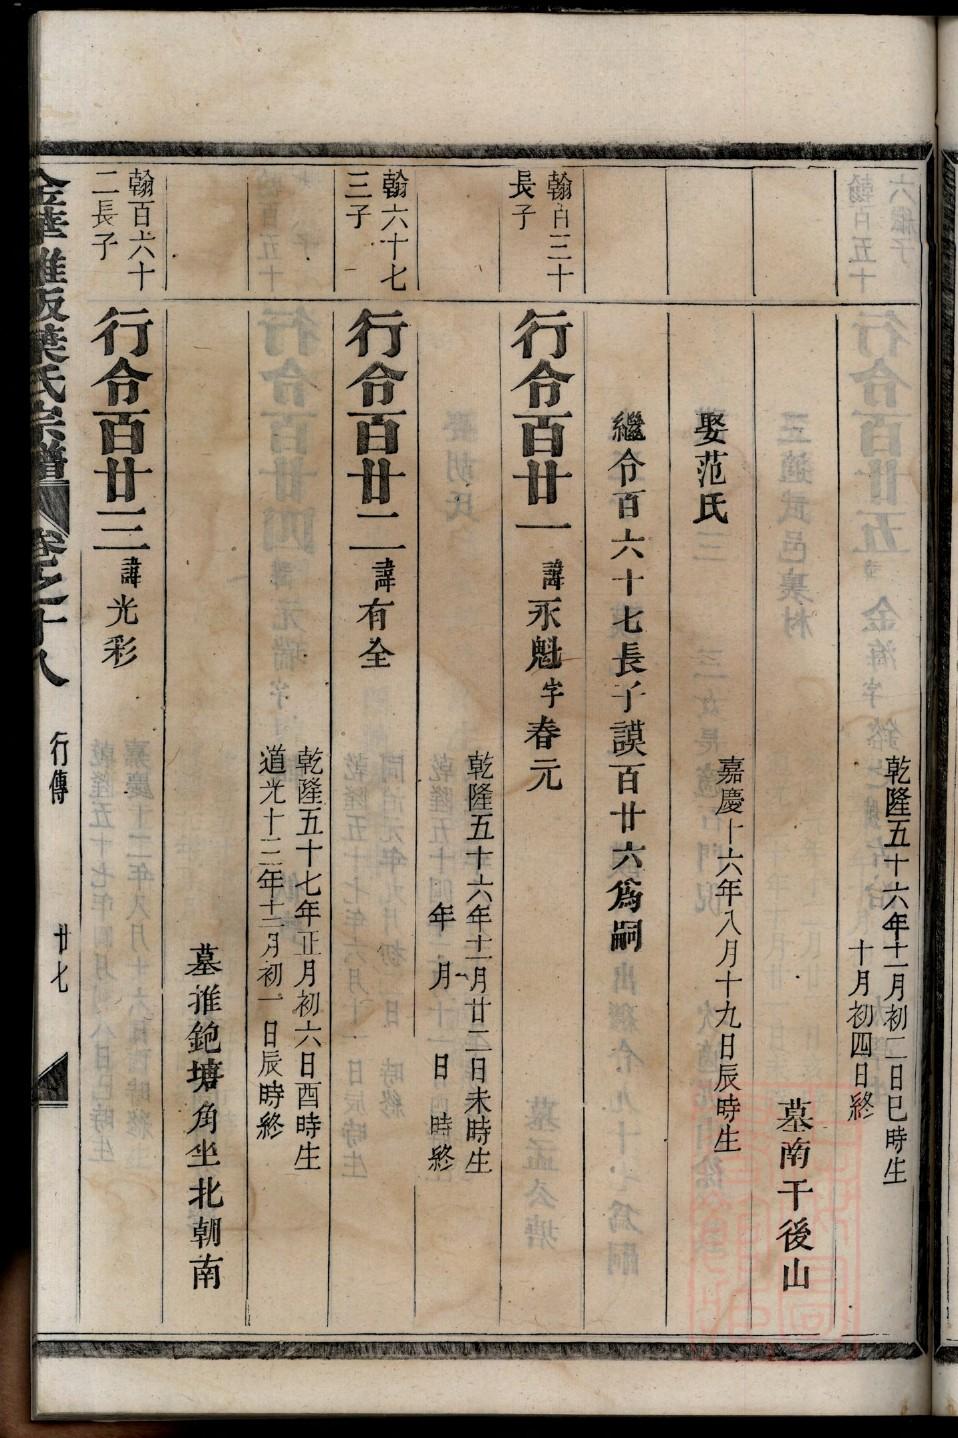 乾隆五十六年十一月初二日巳時生
十月初四日終
墓南干後山
嘉慶十六年八月十九日辰時生
娶范氏
繼令百六十七長子謨百廿六為嗣
翰百三十
長子
行令百廿一 諱永魁字春元
乾隆五十六年十一月廿二日未時生
年 月 日 時終
翰六十七
三子
行令百廿二 諱有全
乾隆五十七年正月初六日酉時生
道光十二年十二月初一日辰時終
墓推鉋塘角坐北朝南
翰百六十
二長子
行令百廿三 諱光彩
葉氏宗譜 卷之十八 行傳 廿七